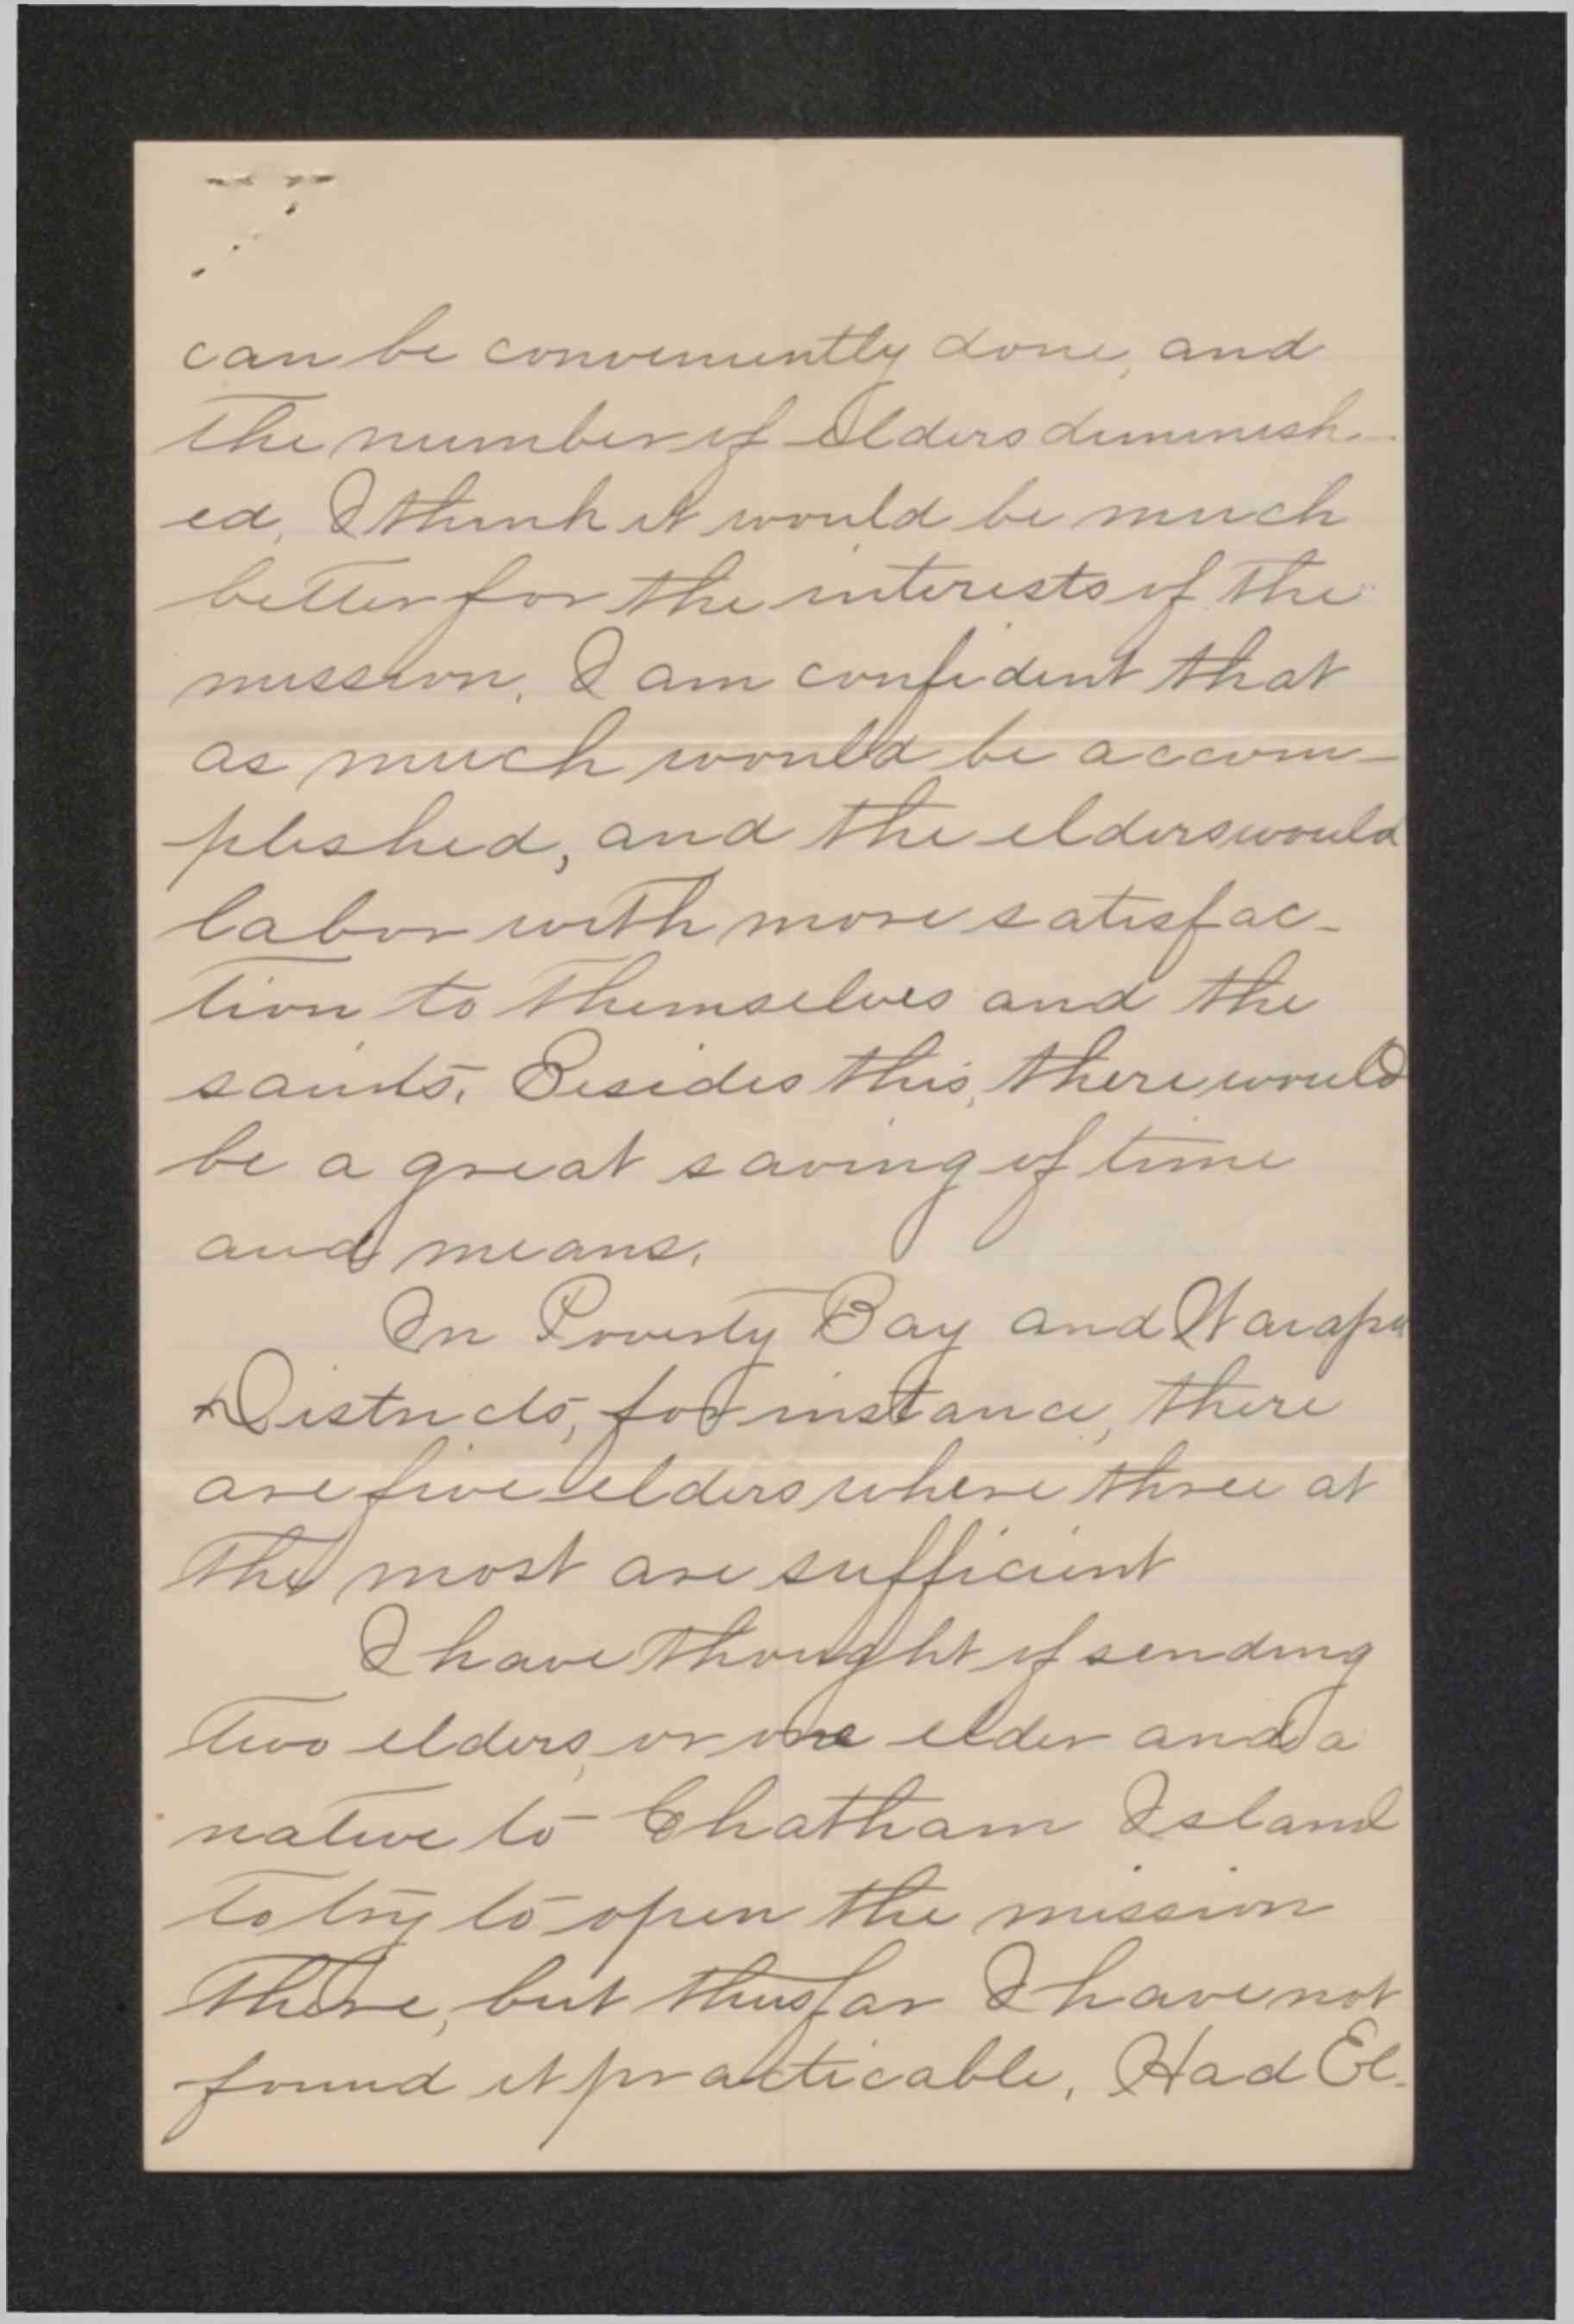 can be conveniently done, and
the number of Elders diminish-
ed, I think it would be much
better for the interests of the
mission. I am confident that
as much would be accom-
plished, and the elders would
labor with more satisfac-
tion to themselves and the
saints. Besides this, there would
be a great saving of time
and means.
In Poverty Bay and Waiapu
Districts, for instance, there
are five elders where three at
the most are sufficient
I have thought of sending
two elders, or one elder and a
native to Chatham Island
to try to open the mission
there, but thus far I have not
found it practicable. Had El-